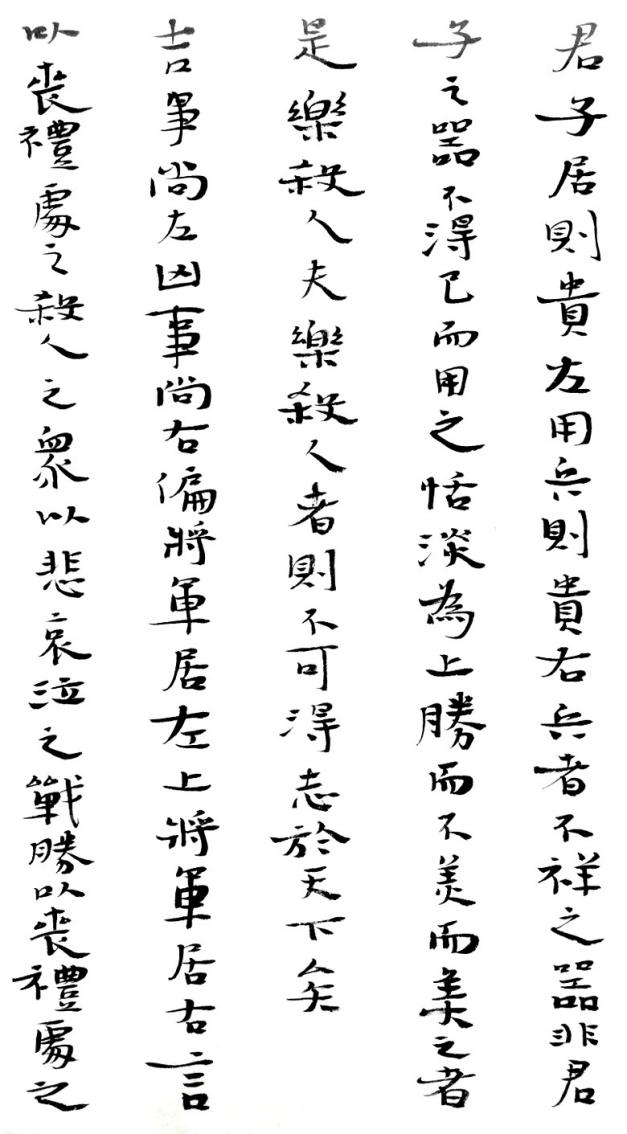 君子居則貴左用兵則貴右兵者不祥之器非君
子之器不得已而用之恬淡為上勝而不美而美之者
是樂殺人夫樂殺人者則不可得志於天下矣
吉事尚左凶事尚右偏將軍居左上將軍居右言
以喪禮處之殺人之衆以悲哀泣之戰勝以喪禮處之